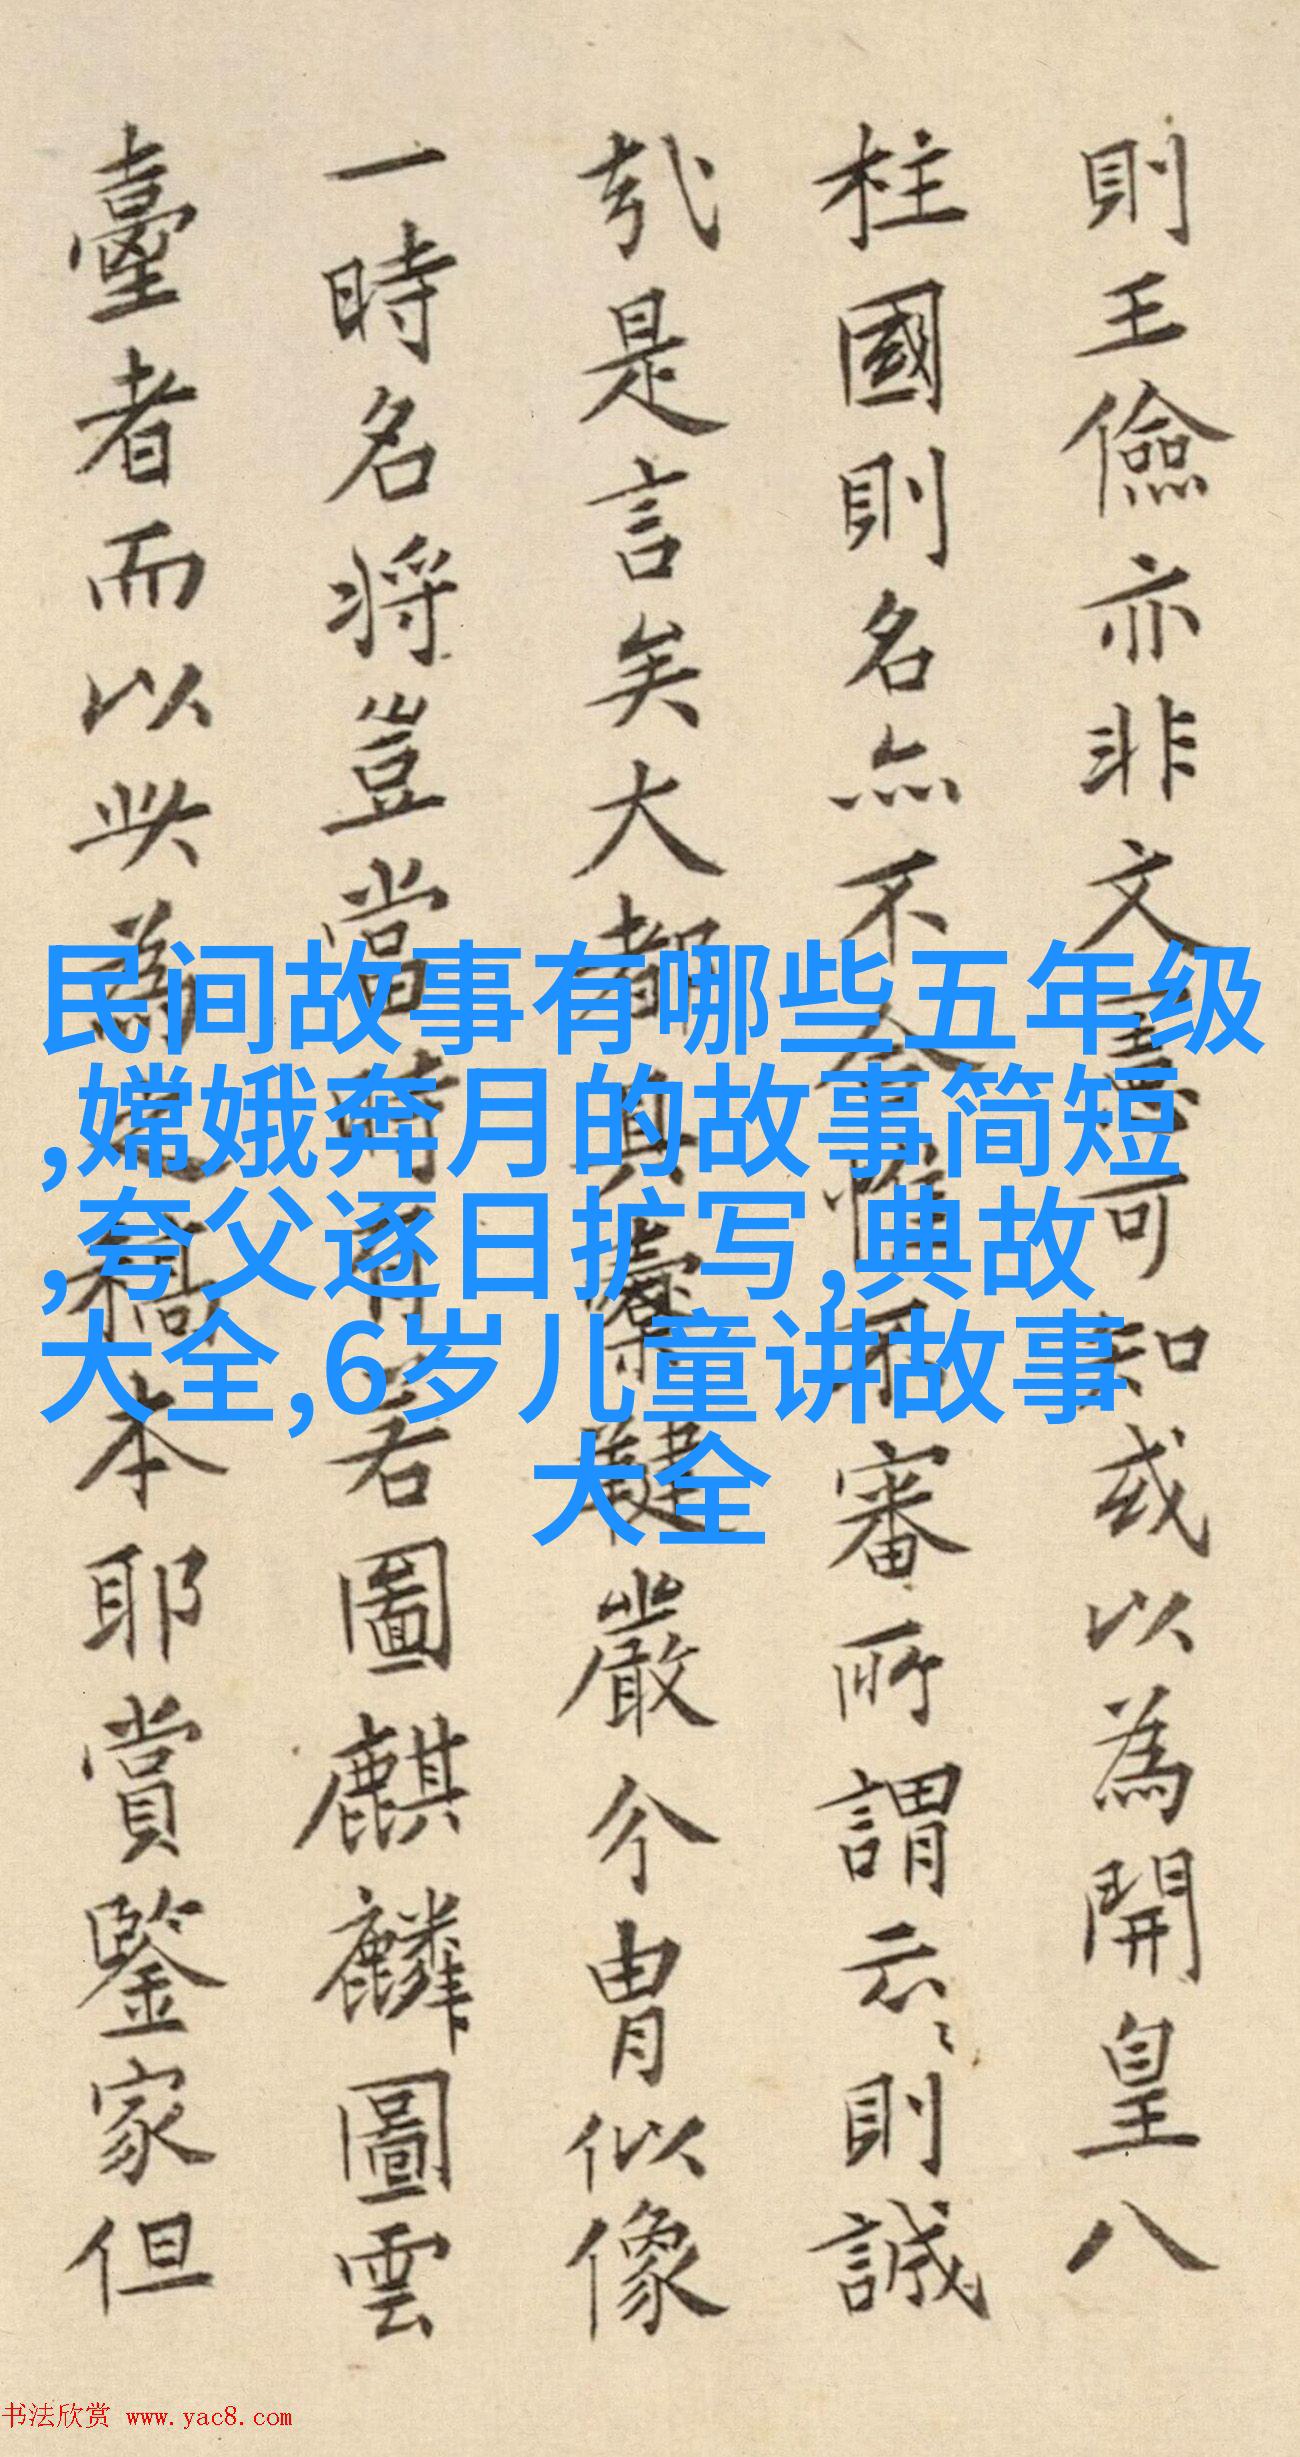 則王儉亦非文憲可知或以為開皇八
柱國則名亦不合惟不審所謂云〻則誠
哉是言矣大都具櫜鞬嚴介胄似像
一時名将豈當時有若圖麒麟圖雲
臺者而以此為之稿本耶賞鑒家但
民间故事有哪些五年级
,嫦娥奔月的故事简短
,夸父逐日扩写,典故
大全,6岁儿童讲故事
大全
书法欣赏 www.yac8.com